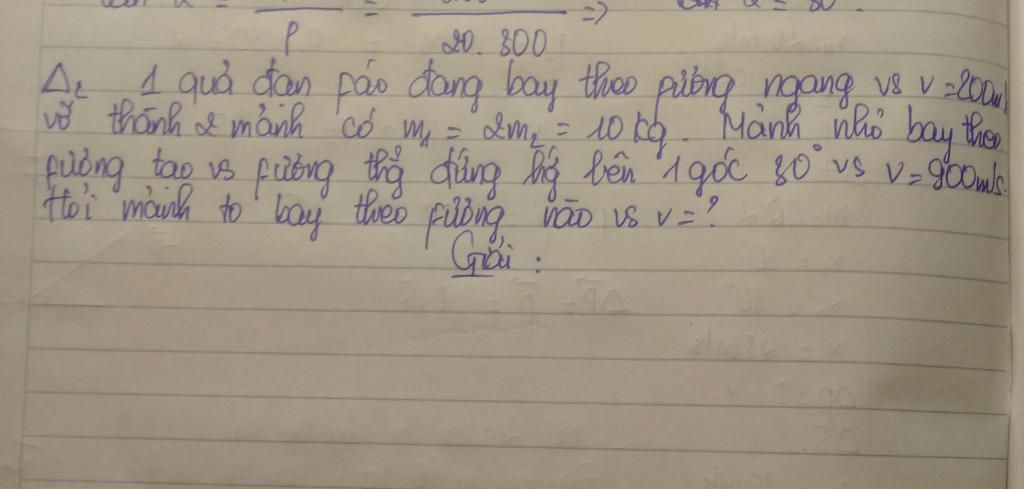 P 20. 300
Δ₂ 1 quả đạn páo đang bay theo pương ngang vs v = 200m/
vỡ thành 2 mảnh có m₁ = 2m₂ = 10 kg. Mảnh nhỏ bay theo
pương tạo vs pương thg đứng bên 1 góc 30° vs v = 900m/s.
Hỏi mảnh to bay theo pương nào vs v = ?
Giải :